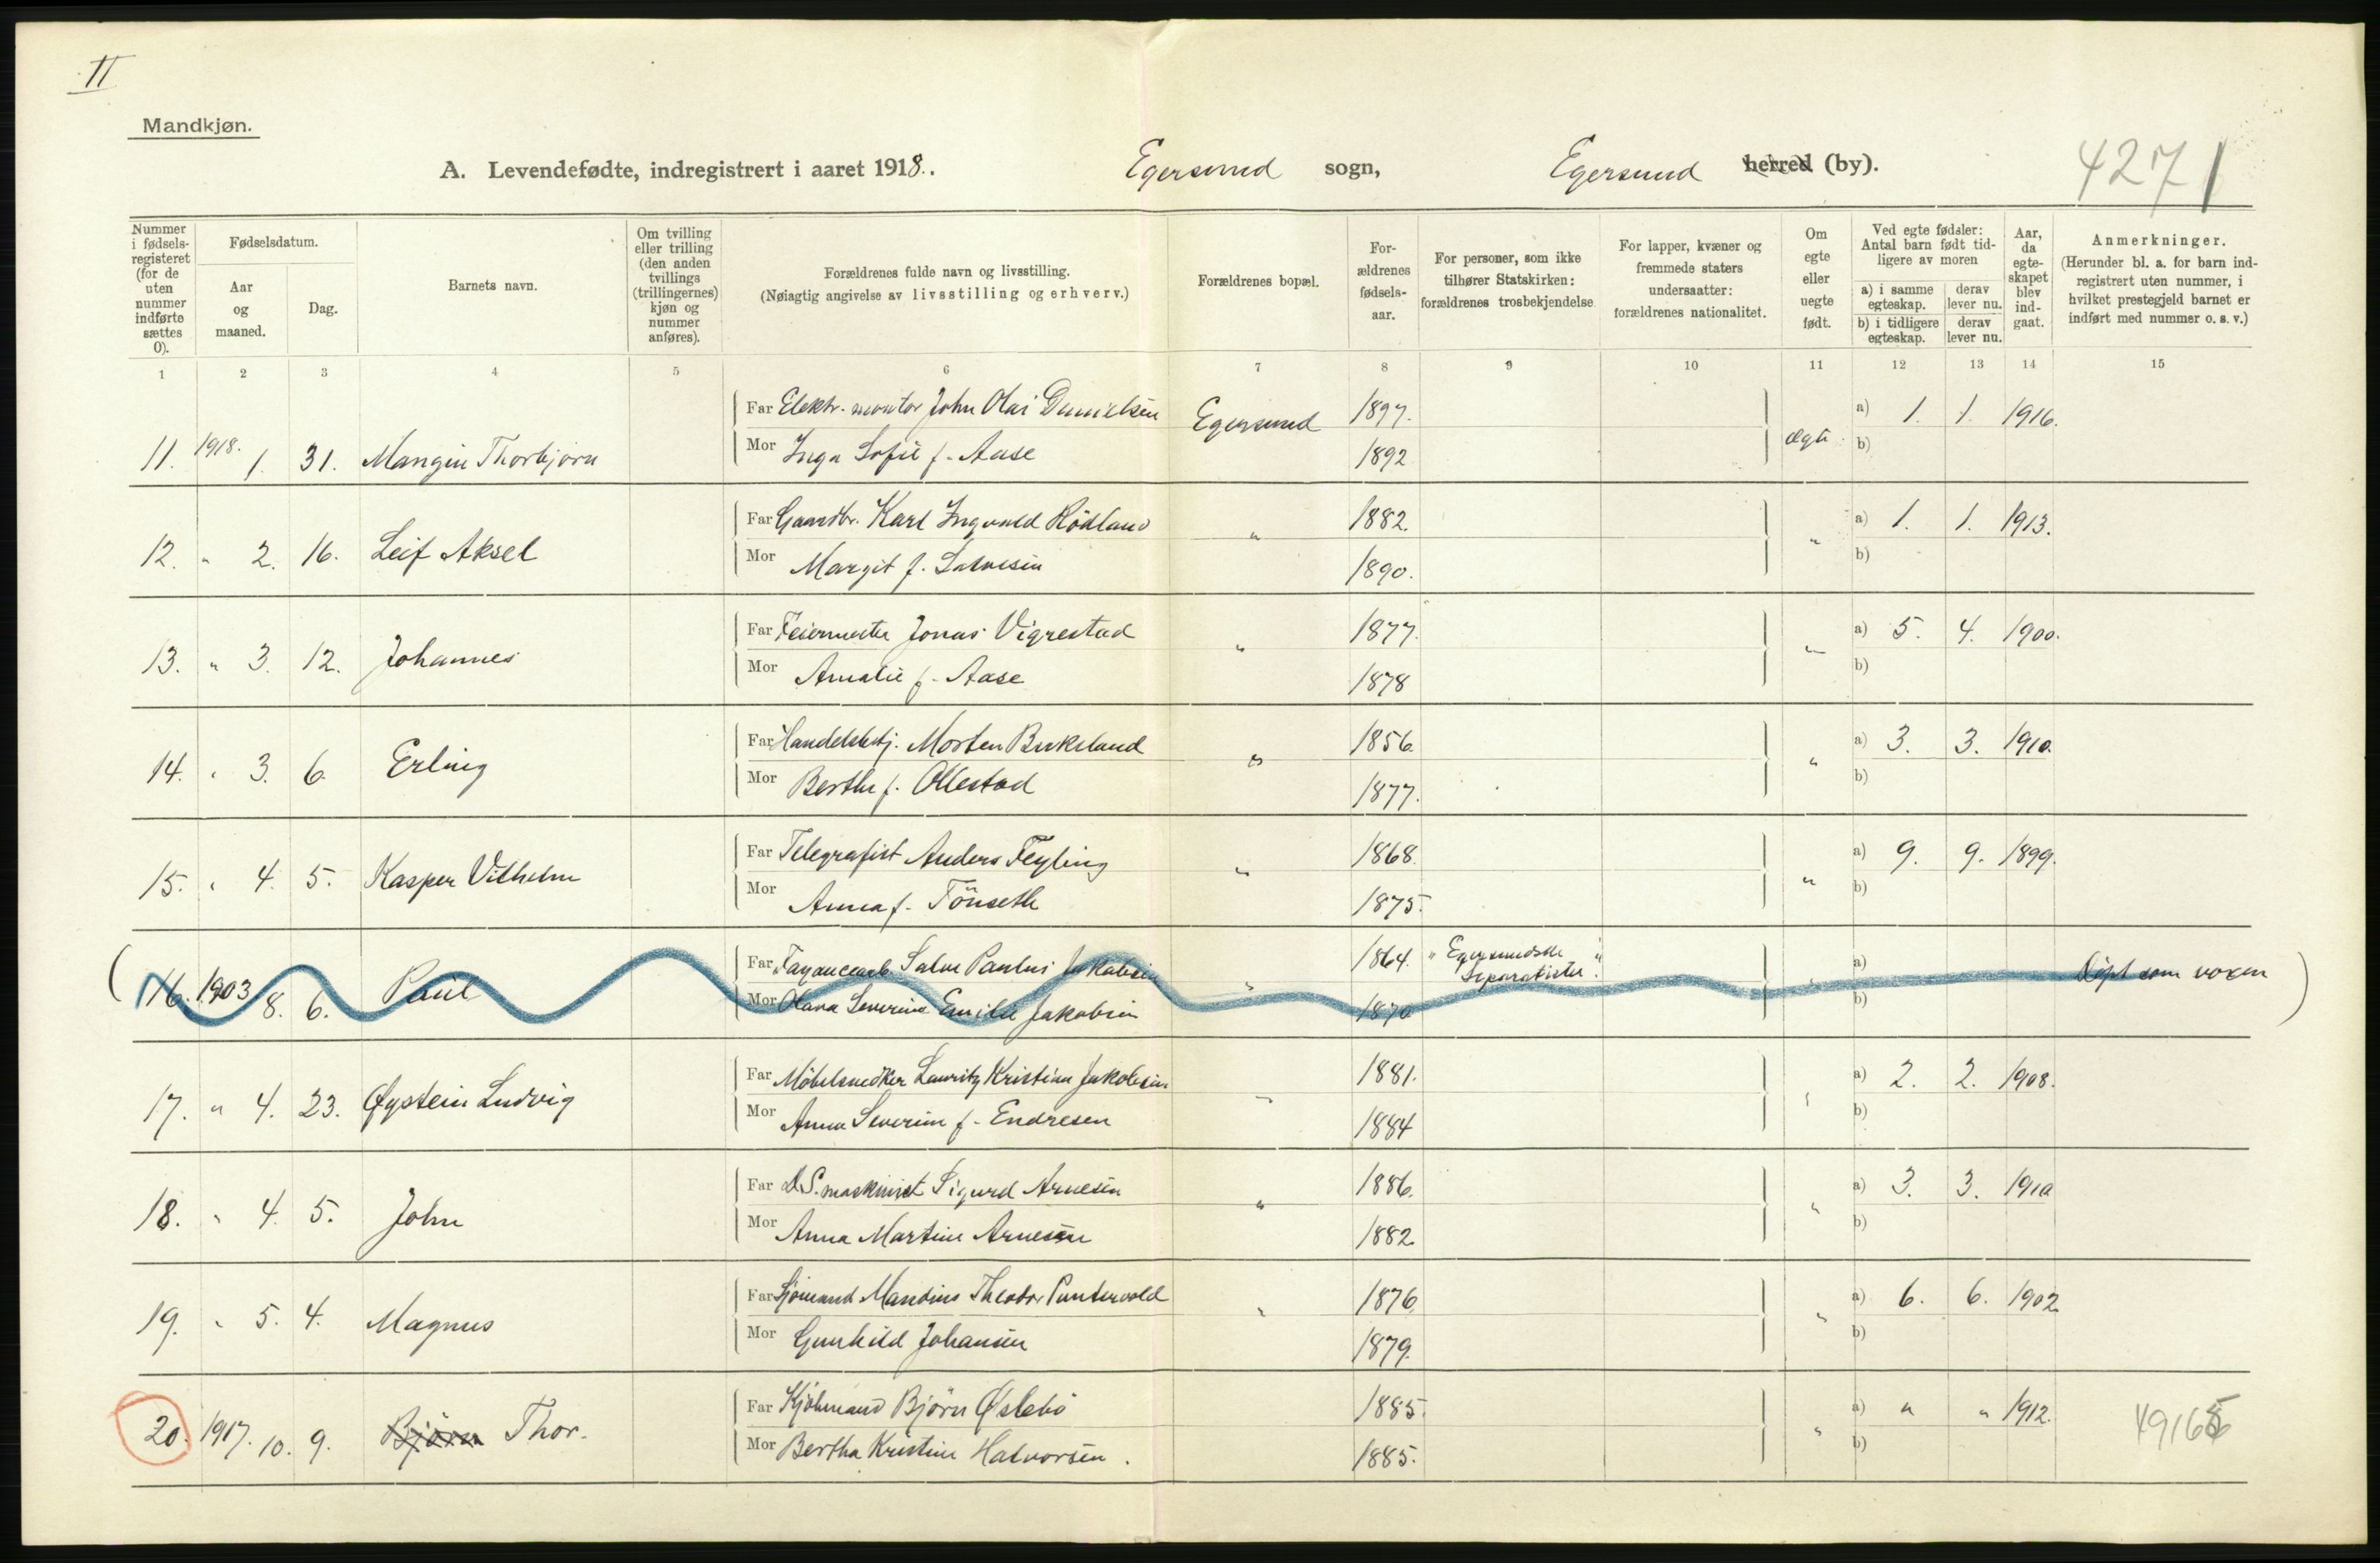 II
Mandkjøn.
A. Levendefødte, indregistrert i aaret 1918. Egersund sogn, Egersund herred (by). 4271
Nummer i fødsels-registeret (for de uten nummer indførte sættes 0).
Fødselsdatum.
Aar og maaned.
Dag.
Barnets navn.
Om tvilling eller trilling (den anden tvillings (trillingernes) kjøn og nummer anføres).
Forældrenes fulde navn og livsstilling.
(Nøiagtig angivelse av livsstilling og erhverv.)
Forældrenes bopæl.
For-ældrenes fødsels-aar.
For personer, som ikke tilhører Statskirken: forældrenes trosbekjendelse
For lapper, kvæner og fremmede staters undersaatter: forældrenes nationalitet.
Om egte eller uegte født.
Ved egte fødsler: Antal barn født tid-ligere av moren
a) i samme egteskap.
derav lever nu.
b) i tidligere egteskap.
derav lever nu.
Aar, da egte-skapet blev ind-gaat.
Anmerkninger.
(Herunder bl. a. for barn ind-registrert uten nummer, i hvilket prestegjeld barnet er indført med nummer o. s. v.)
1 2 3 4 5 6 7 8 9 10 11 12 13 14 15
Far Elektr. montør John Olai Danielsen Egersund 1897. a) 1. 1. 1916.
11. 1918. 1. 31. Mangin Thorbjørn Mor Inga Sofie f. Aase 1892 ægte b)
Far Gaardbr. Karl Ingvald Rödland " 1882. a) 1. 1. 1913.
12. " 2. 16. Leif Aksel Mor Margit f. Salvesen 1890. " b)
Far Feiermester Jonas Vigrestad " 1877. a) 5. 4. 1900.
13. " 3. 12. Johannes Mor Amalie f. Aase 1878 " b)
Far Handelsbetj. Morten Birkeland " 1856. a) 3. 3. 1910.
14. " 3. 6. Erling Mor Berthe f. Ollestad 1877. " b)
Far Telegrafist Anders Feyling " 1868. a) 9. 9. 1899.
15. " 4. 5. Kasper Vilhelm Mor Anna f. Tönseth 1875. " b)
Far Fayancearb. Salve Paulus Jakobsen " 1864. "Egersundske Separatister". a)
16. 1903 8. 6. Paul Mor Olava Severine Emilie Jakobsen 1870 " b) Døpt som voxen
Far Möbelsnedker Lauritz Kristian Jakobsen " 1881. a) 2. 2. 1908.
17. " 4. 23. Øystein Ludvig Mor Anna Severine f. Endresen 1884 " b)
Far D.S. maskinist Sigurd Arnesen " 1886. a) 3. 3. 1910
18. " 4. 5. John Mor Anna Martine Arnesen 1882. " b)
Far Sjömand Mandius Theodor Puntervold " 1876. a) 6. 6. 1902
19. " 5. 4. Magnus Mor Gunhild Johansen 1879. " b)
Far Kjøbmand Björn Øslebö 1885. a) " " 1912.
20. 1917. 10. 9. Björn Thor. Mor Bertha Kristine Halvorsen. 1885. " b) 49165